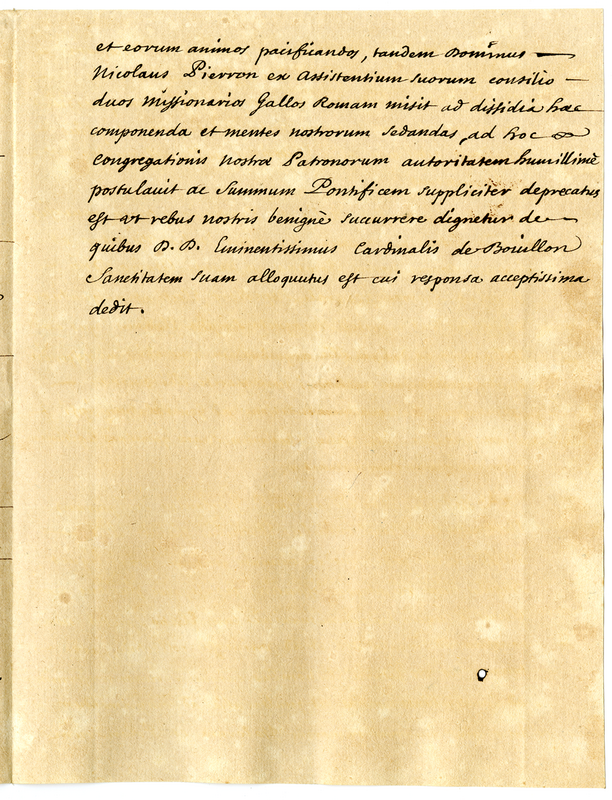 et eorum animos pacificandos, tandem Dominus —
Nicolaus Pierron ex Assistentium suorum consilio —
duos Missionarios Gallos Romam misit ad dissidia hæc
componenda et mentes nostrorum sedandas, ad hoc
congregationis nostræ Patronorum autoritatem humillimè
postulavit ac Summum Pontificem suppliciter deprecatus
est vt rebus nostris benignè succurrere dignetur de —
quibus D. D. Eminentissimus Cardinalis de Boüillon
Sanctitatem suam alloquutus est cui responsa acceptissima
dedit.